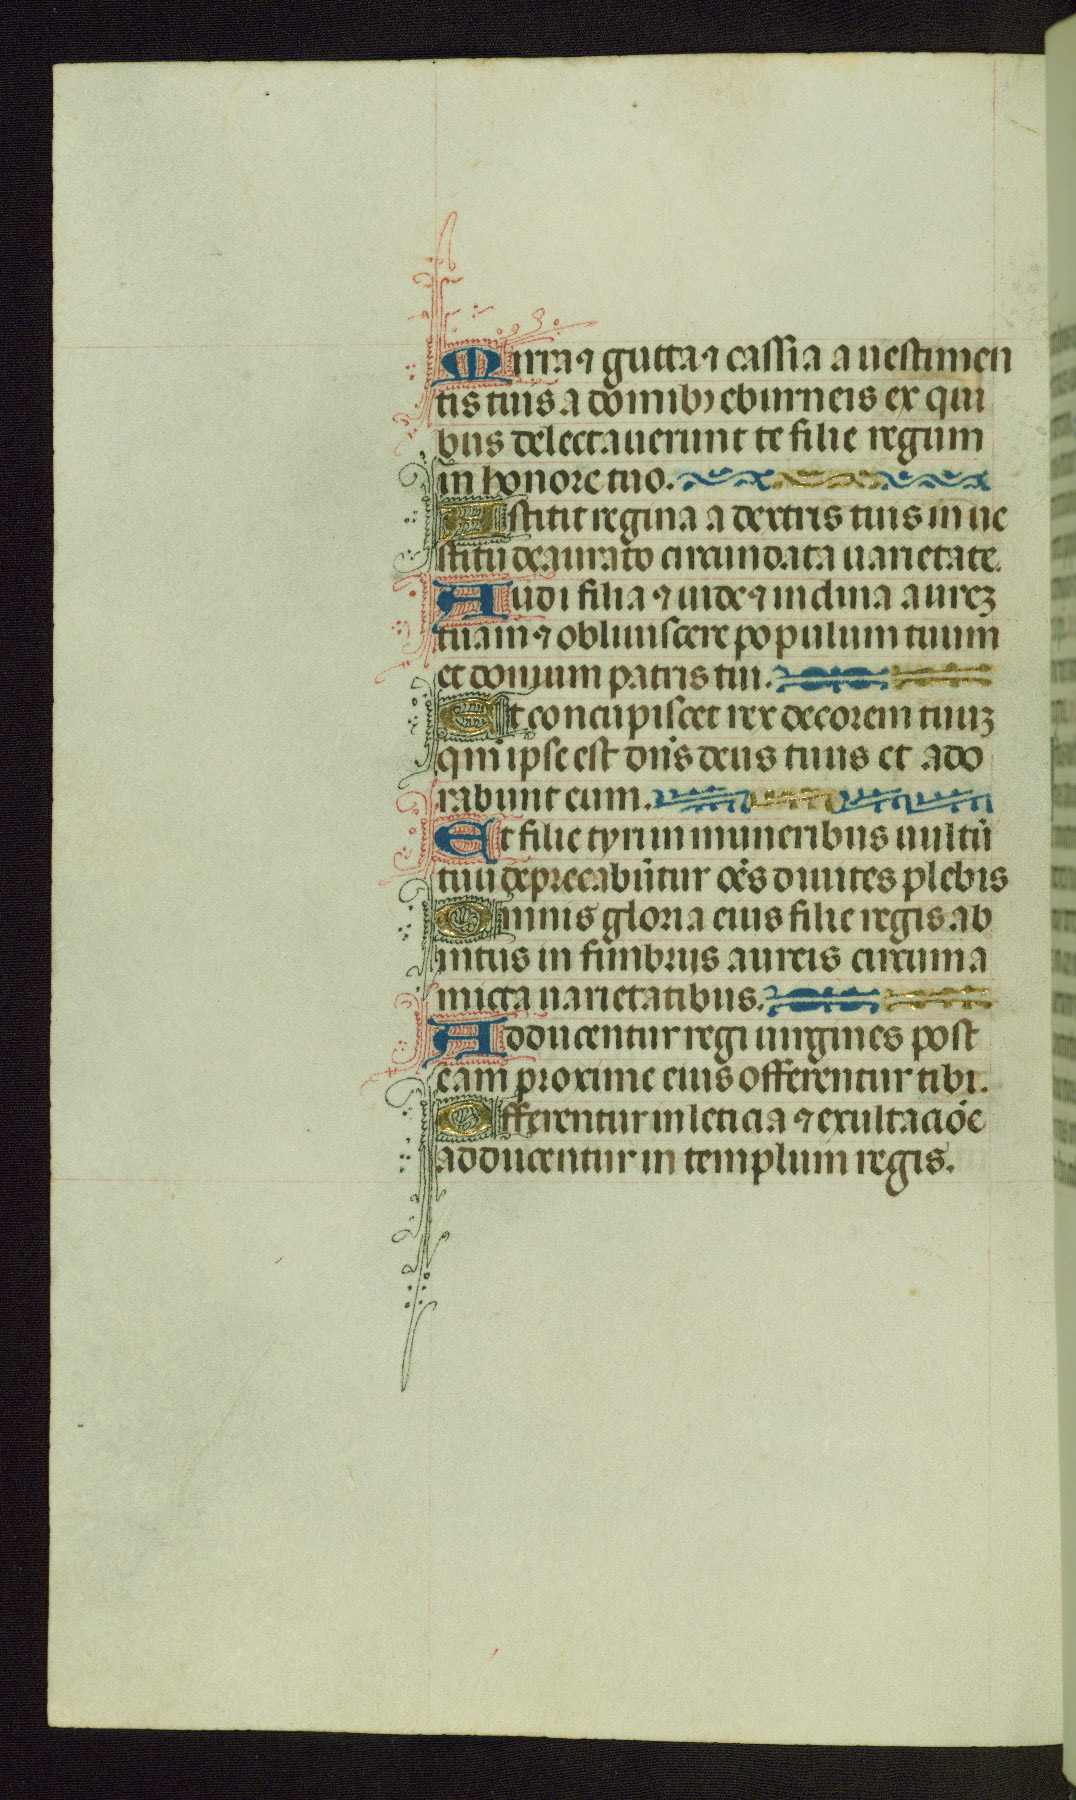 Mirra ⁊ gutta ⁊ cassia a uestimen
tis tuis a domibꝫ eburneis ex qui
bus delectauerunt te filie regum
in honore tuo.
Astitit regina a dextris tuis in ue
stitu deaurato circundata uarietate.
Audi filia ⁊ uide ⁊ inclina aureꝫ
tuam ⁊ obliuiscere populum tuum
et domum patris tui.
Et concupiscet rex decorem tuuꝫ
qm̄ ipse est dn̄s deus tuus et ado
rabunt eum.
Et filie tyri in muneribus uultū
tuu deprecabūtur oēs diuites plebis
Omnis gloria eius filie regis ab
intus in fimbrijs aureis circuma
micta uarietatibus.
Adducentur regi uirgines post
eam proxime eius offerentur tibi.
Offerentur in leticia ⁊ exultaciōe
adducentur in templum regis.